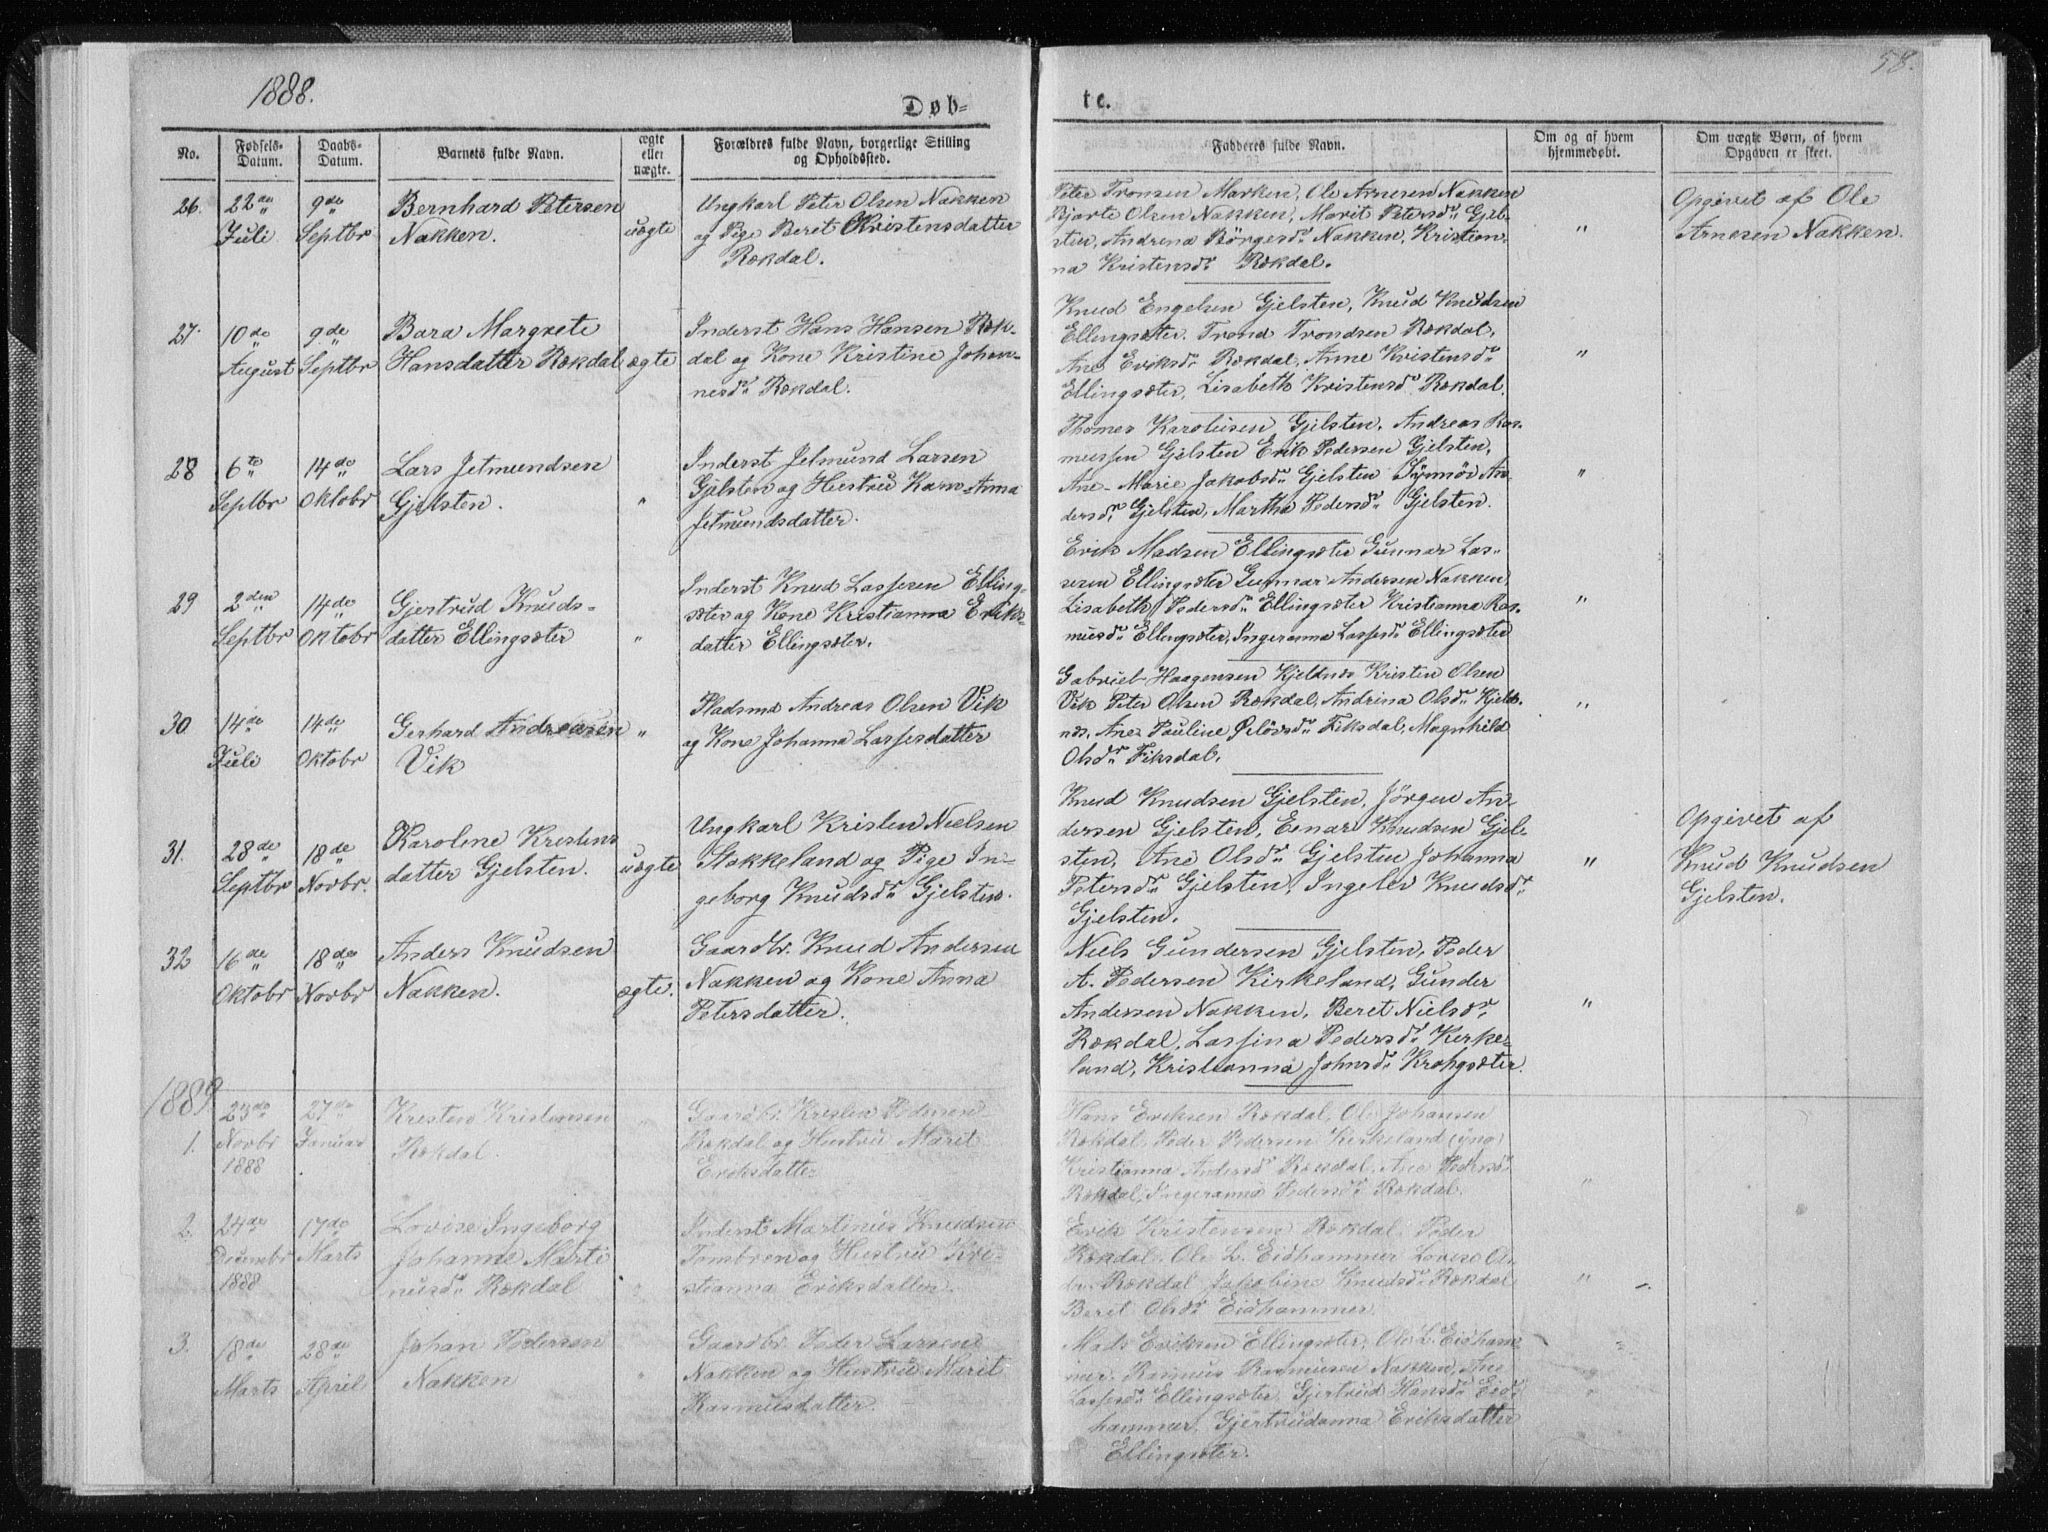 1888.
Døb-
te.
58.
No.
Fødsels-Datum.
Daabs-Datum.
Barnets fulde Navn.
ægte eller uægte.
Forældres fulde Navn, borgerlige Stilling og Opholdssted.
Fadderes fulde Navn.
Om og af hvem hjemmedøbt.
Om uægte Børn, af hvem Opgaven er skeet.
26.
22de Juli
9de Septbr
Bernhard Petersen
Nakken.
uægte
Ungkarl Peter Olsen Nakken
og Pige Beret Kristensdatter
Rekdal.
Peter Tronsen Marken, Ole Arnesen Nakken
Bjarte Olsen Nakken, Marit Petersdr Gjel-
sten, Andrena Börgesdr Nakken, Kristian-
na Kristensdr Rekdal.
"
Opgivet af Ole
Arnesen Nakken.
27.
10de August
9de Septbr
Bara Margrete
Hansdatter Rekdal
ægte
Inderst Hans Hansen Rek-
dal og Kone Kristine Johan-
nesdr Rekdal.
Knud Engelsen Gjelsten, Knud Knudsen
Ellingsæter, Trond Trondsen Rekdal,
Ane Eriksdr Rekdal, Anne Kristensdr
Ellingsæter, Lisabeth Kristensdr Rekdal.
"
28
6te Septbr
14de Oktobr
Lars Jetmundsen
Gjelsten.
"
Inderst Jetmund Larsen
Gjelsten og Hustru Karn-Anna
Jetmundsdatter.
Thomas Karolusen Gjelsten, Andreas Ras-
mussen Gjelsten Erik Pedersen Gjelsten,
Ane-Marie Jakobsdr Gjelsten Synnöv An-
dersdr Gjelsten, Martha Pedersdr Gjelsten.
"
29
2den Septbr
14de Oktobr
Gjertrud Knuds-
datter Ellingsæter
"
Inderst Knud Lassesen Elling-
sæter og Kone Kristianna Eriks-
datter Ellingsæter.
Erik Madsen Ellingsæter Gunnar Las-
sesen Ellingsæter Gunnar Andersen Nakken,
Lisabeth Pedersdr Ellingsæter Kristianna Ras-
musdr Ellingsæter, Ingeranna Lassesdr Ellingsæter
"
30
14de Juli
14de Oktobr
Gerhard Andreasen
Vik
"
Pladsmd Andreas Olsen Vik
og Kone Johanna Lassesdatter
Gabriel Haagensen Kjelbnes Kristen Olsen
Vik Peter Olsen Rekdal, Andrina Olsdr Kjelb-
nes, Ane Pauline Fiksdal, Magnhild
Olsdr Fiksdal.
"
31.
28de Septbr
18de Novbr.
Karoline Krestens
datter Gjelsten.
uægte
Ungkarl Kristen Nielsen
Stokkeland og Pige In-
geborg Knudsdr Gjelsten.
Knud Knudsen Gjelsten, Jörgen An-
dersen Gjelsten, Einar Knudsen Gjel-
sten, Ane Olsdr Gjelsten Johanna
Petersdr Gjelsten, Ingelev Knudsdr
Gjelsten.
"
Opgivet af
Knud Knudsen
Gjelsten.
32
16de Oktobr
18de Novbr
Anders Knudsen
Nakken.
ægte.
Gaardbr. Knud Andersen
Nakken og Kone Anna
Petersdatter.
Niels Gundersen Gjelsten, Peder
A. Pedersen Kirkeland, Gunder
Andersen Nakken, Beret Nielsdr
Rekdal, Lassina Pedersdr Kerke-
land, Kristianna Johnsdr Krohgsæter.
"
1889
1.
23de Novbr 1888
27de Januar
Kresten Kristensen
Rekdal.
"
Gaardbr. Kresten Pedersen
Rekdal og Hustru Marit
Eriksdatter
Hans Eriksen Rekdal, Ole Johansen
Rekdal, Peder Pedersen Kerkeland (yng)
Kristianna Andersdr Rekdal, Ane Pedersdr
Rekdal, Ingeranna Pedersdr Rekdal.
"
2.
24de Decembr 1888
17de Marts
Lovise Ingeborg
Johanne Marti
nusdr Rekdal
"
Inderst Martinus Knudsen
Tombren og Hustru Kri-
stianna Eriksdatter.
Erik Kristensen Rekdal, Peder
Rekdal, Ole L. Eidhammer Lovise Ol-
dr Rekdal Jakobine Knudsdr Rekdal
Beret Olsdr Eidhammer.
"
3.
18de Marts
28de April
Johan Pedersen
Nakken
"
Gaardbr. Peder Larsen
Nakken og Hustru Marit
Rasmusdatter.
Mads Eriksen Ellingsæter, Ole L. Eidham
mer, Rasmus Rasmusen Nakken, Ane
Lassesdr Ellingsæter, Gjertrud Hansdr Eid-
hammer, Gjertrudanna Eriksdatter
Ellingsæter.
"